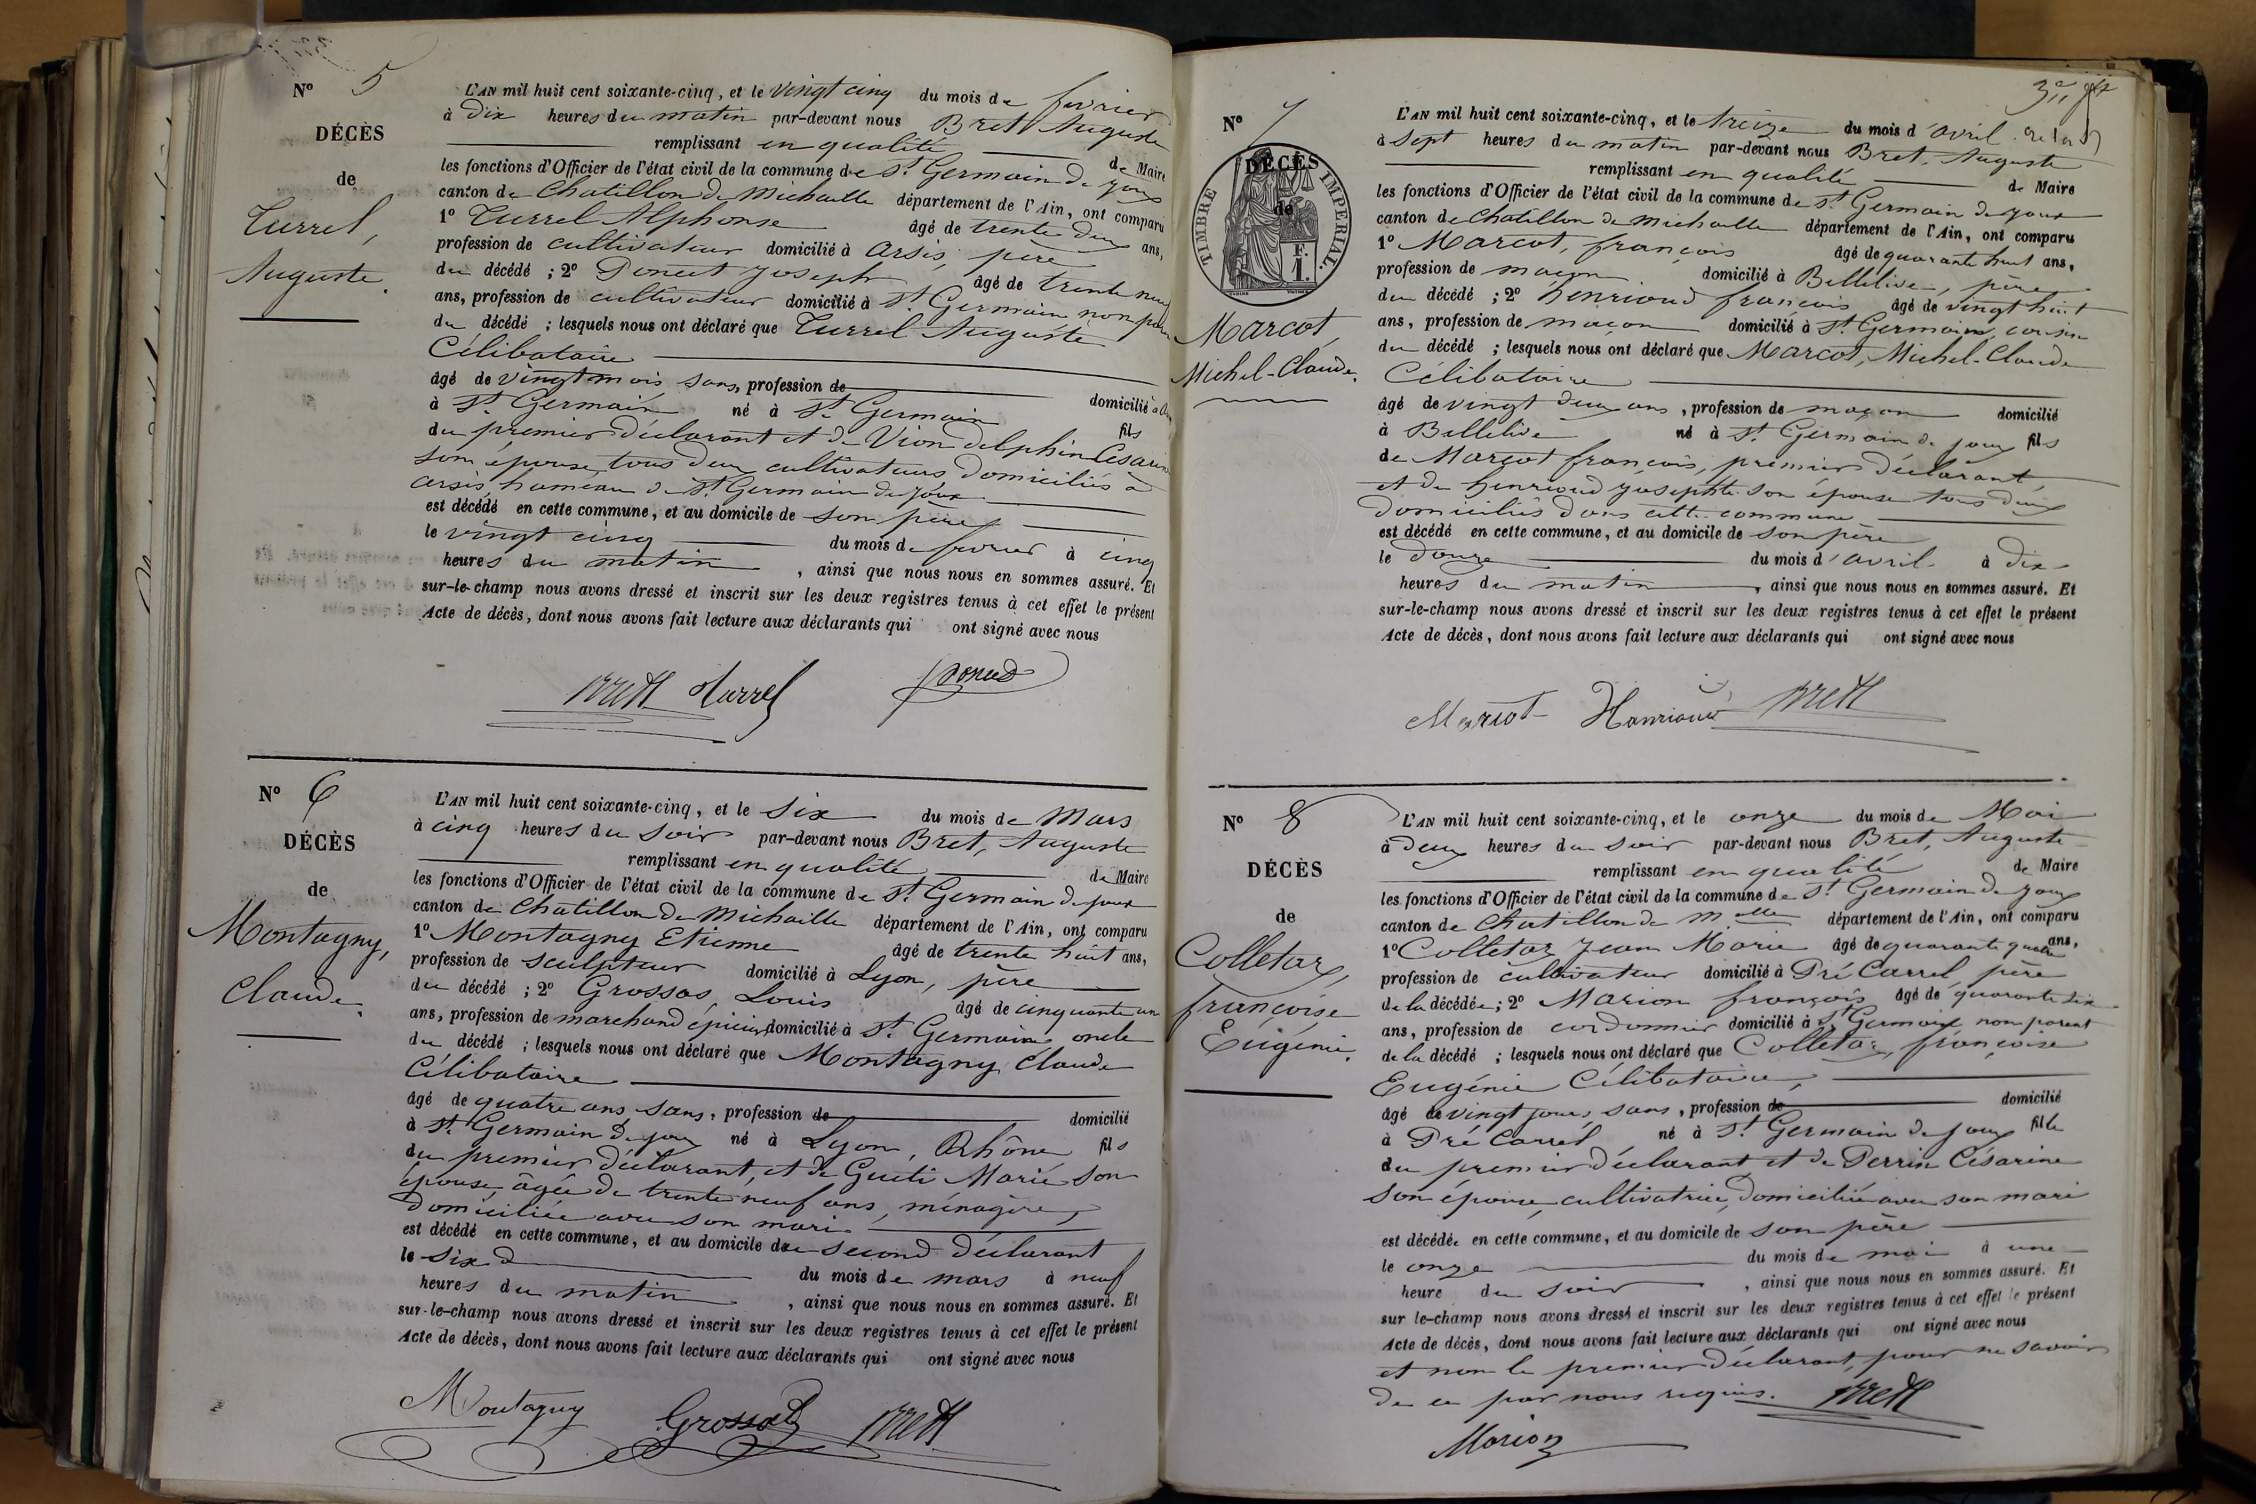 N° 5
DÉCÈS
de
Turrel,
Auguste.
L'AN mil huit cent soixante-cinq, et le vingt cinq du mois de fevrier
à dix heures du matin par-devant nous Bret Auguste
remplissant en qualité de Maire
les fonctions d'Officier de l'état civil de la commune de St. Germain de joux
canton de Chatillon de Michaille département de l'Ain, ont comparu
1° Turrel Alphonse âgé de trente deux ans,
profession de cultivateur domicilié à Arsis, père
du décédé ; 2° Poncet Joseph âgé de trente neuf
ans, profession de cultivateur domicilié à St. Germain non parent
du décédé ; lesquels nous ont déclaré que Turrel Auguste
Célibataire
âgé de vingt mois sans, profession de domicilié
à St. Germain né à St. Germain fils
du premier déclarant et de Vion delphine Césarine
son épouse, tous deux cultivateurs domiciliés à
arsis, hameau de St. Germain de Joux
est décédé en cette commune, et au domicile de son père
le vingt cinq du mois de fevrier à cinq
heures du matin, ainsi que nous nous en sommes assuré. Et
sur-le-champ nous avons dressé et inscrit sur les deux registres tenus à cet effet le présent
Acte de décès, dont nous avons fait lecture aux déclarants qui ont signé avec nous
Brett Turrel Poncet
N° 6
DÉCÈS
de
Montagny,
Claude.
L'AN mil huit cent soixante-cinq, et le six du mois de Mars
à cinq heures du soir par-devant nous Bret, Auguste
remplissant en qualité de Maire
les fonctions d'Officier de l'état civil de la commune de St. Germain de joux
canton de Chatillon de Michaille département de l'Ain, ont comparu
1° Montagny Etienne âgé de trente huit ans,
profession de sculpteur domicilié à Lyon, père
du décédé ; 2° Grossas, Louis âgé de cinquante un
ans, profession de marchand épicier domicilié à St. Germain oncle
du décédé ; lesquels nous ont déclaré que Montagny Claude
Célibataire
âgé de quatre ans sans, profession de domicilié
à St. Germain de joux né à Lyon, Rhône fils
du premier déclarant, et de Gueti Marie son
épouse, âgée de trente neuf ans, ménagère,
domiciliée avec son mari
est décédé en cette commune, et au domicile du second déclarant
le six du mois de mars à neuf
heures du matin, ainsi que nous nous en sommes assuré. Et
sur-le-champ nous avons dressé et inscrit sur les deux registres tenus à cet effet le présent
Acte de décès, dont nous avons fait lecture aux déclarants qui ont signé avec nous
Montagny Grossas Brett
N° 7
DÉCÈS
de
TIMBRE IMPERIAL.
F.
1.
Marcot,
Michel-Claude.
L'AN mil huit cent soixante-cinq, et le treize du mois d'avril
à sept heures du matin par-devant nous Bret, Auguste
remplissant en qualité de Maire
les fonctions d'Officier de l'état civil de la commune de St. Germain de joux
canton de Chatillon de Michaille département de l'Ain, ont comparu
1° Marcot, françois âgé de quarante huit ans,
profession de maçon domicilié à Bellelive, père
du décédé ; 2° henrioud françois âgé de vingt huit
ans, profession de maçon domicilié à St. Germain, cousin
du décédé ; lesquels nous ont déclaré que Marcot, Michel-Claude
Célibataire
âgé de vingt deux ans, profession de maçon domicilié
à Bellelive né à St. Germain de joux fils
de Marcot françois, premier déclarant,
et de henrioud josephte son épouse tous deux
domiciliés dans cette commune
est décédé en cette commune, et au domicile de son père
le douze du mois d'avril à dix
heures du matin, ainsi que nous nous en sommes assuré. Et
sur-le-champ nous avons dressé et inscrit sur les deux registres tenus à cet effet le présent
Acte de décès, dont nous avons fait lecture aux déclarants qui ont signé avec nous
Marcot Henrioud Brett
N° 8
DÉCÈS
de
Colletaz,
françoise
Eugénie.
L'AN mil huit cent soixante-cinq, et le onze du mois de Mai
à deux heures du soir par-devant nous Bret, Auguste
remplissant en qualité de Maire
les fonctions d'Officier de l'état civil de la commune de St. Germain de joux
canton de Chatillon de M.elle département de l'Ain, ont comparu
1° Colletaz Jean Marie âgé de quarante quatre ans,
profession de cultivateur domicilié à Pré Carrel, père
de la décédée ; 2° Marion françois âgé de quarante six
ans, profession de cordonnier domicilié à St. Germain non parent
de la décédé ; lesquels nous ont déclaré que Colletaz, françoise
Eugénie Célibataire,
âgé de vingt jours, sans, profession de domicilié
à Pré Carrel né à St. Germain de joux fille
du premier déclarant et de Perrin Césarine
son épouse, cultivatrice, domiciliée avec son mari
est décédée en cette commune, et au domicile de son père
le onze du mois de mai à une
heure du soir, ainsi que nous nous en sommes assuré. Et
sur le-champ nous avons dressé et inscrit sur les deux registres tenus à cet effet le présent
Acte de décès, dont nous avons fait lecture aux déclarants qui ont signé avec nous
et non le premier déclarant, pour ne savoir
de ce par nous requis. Brett
Marion